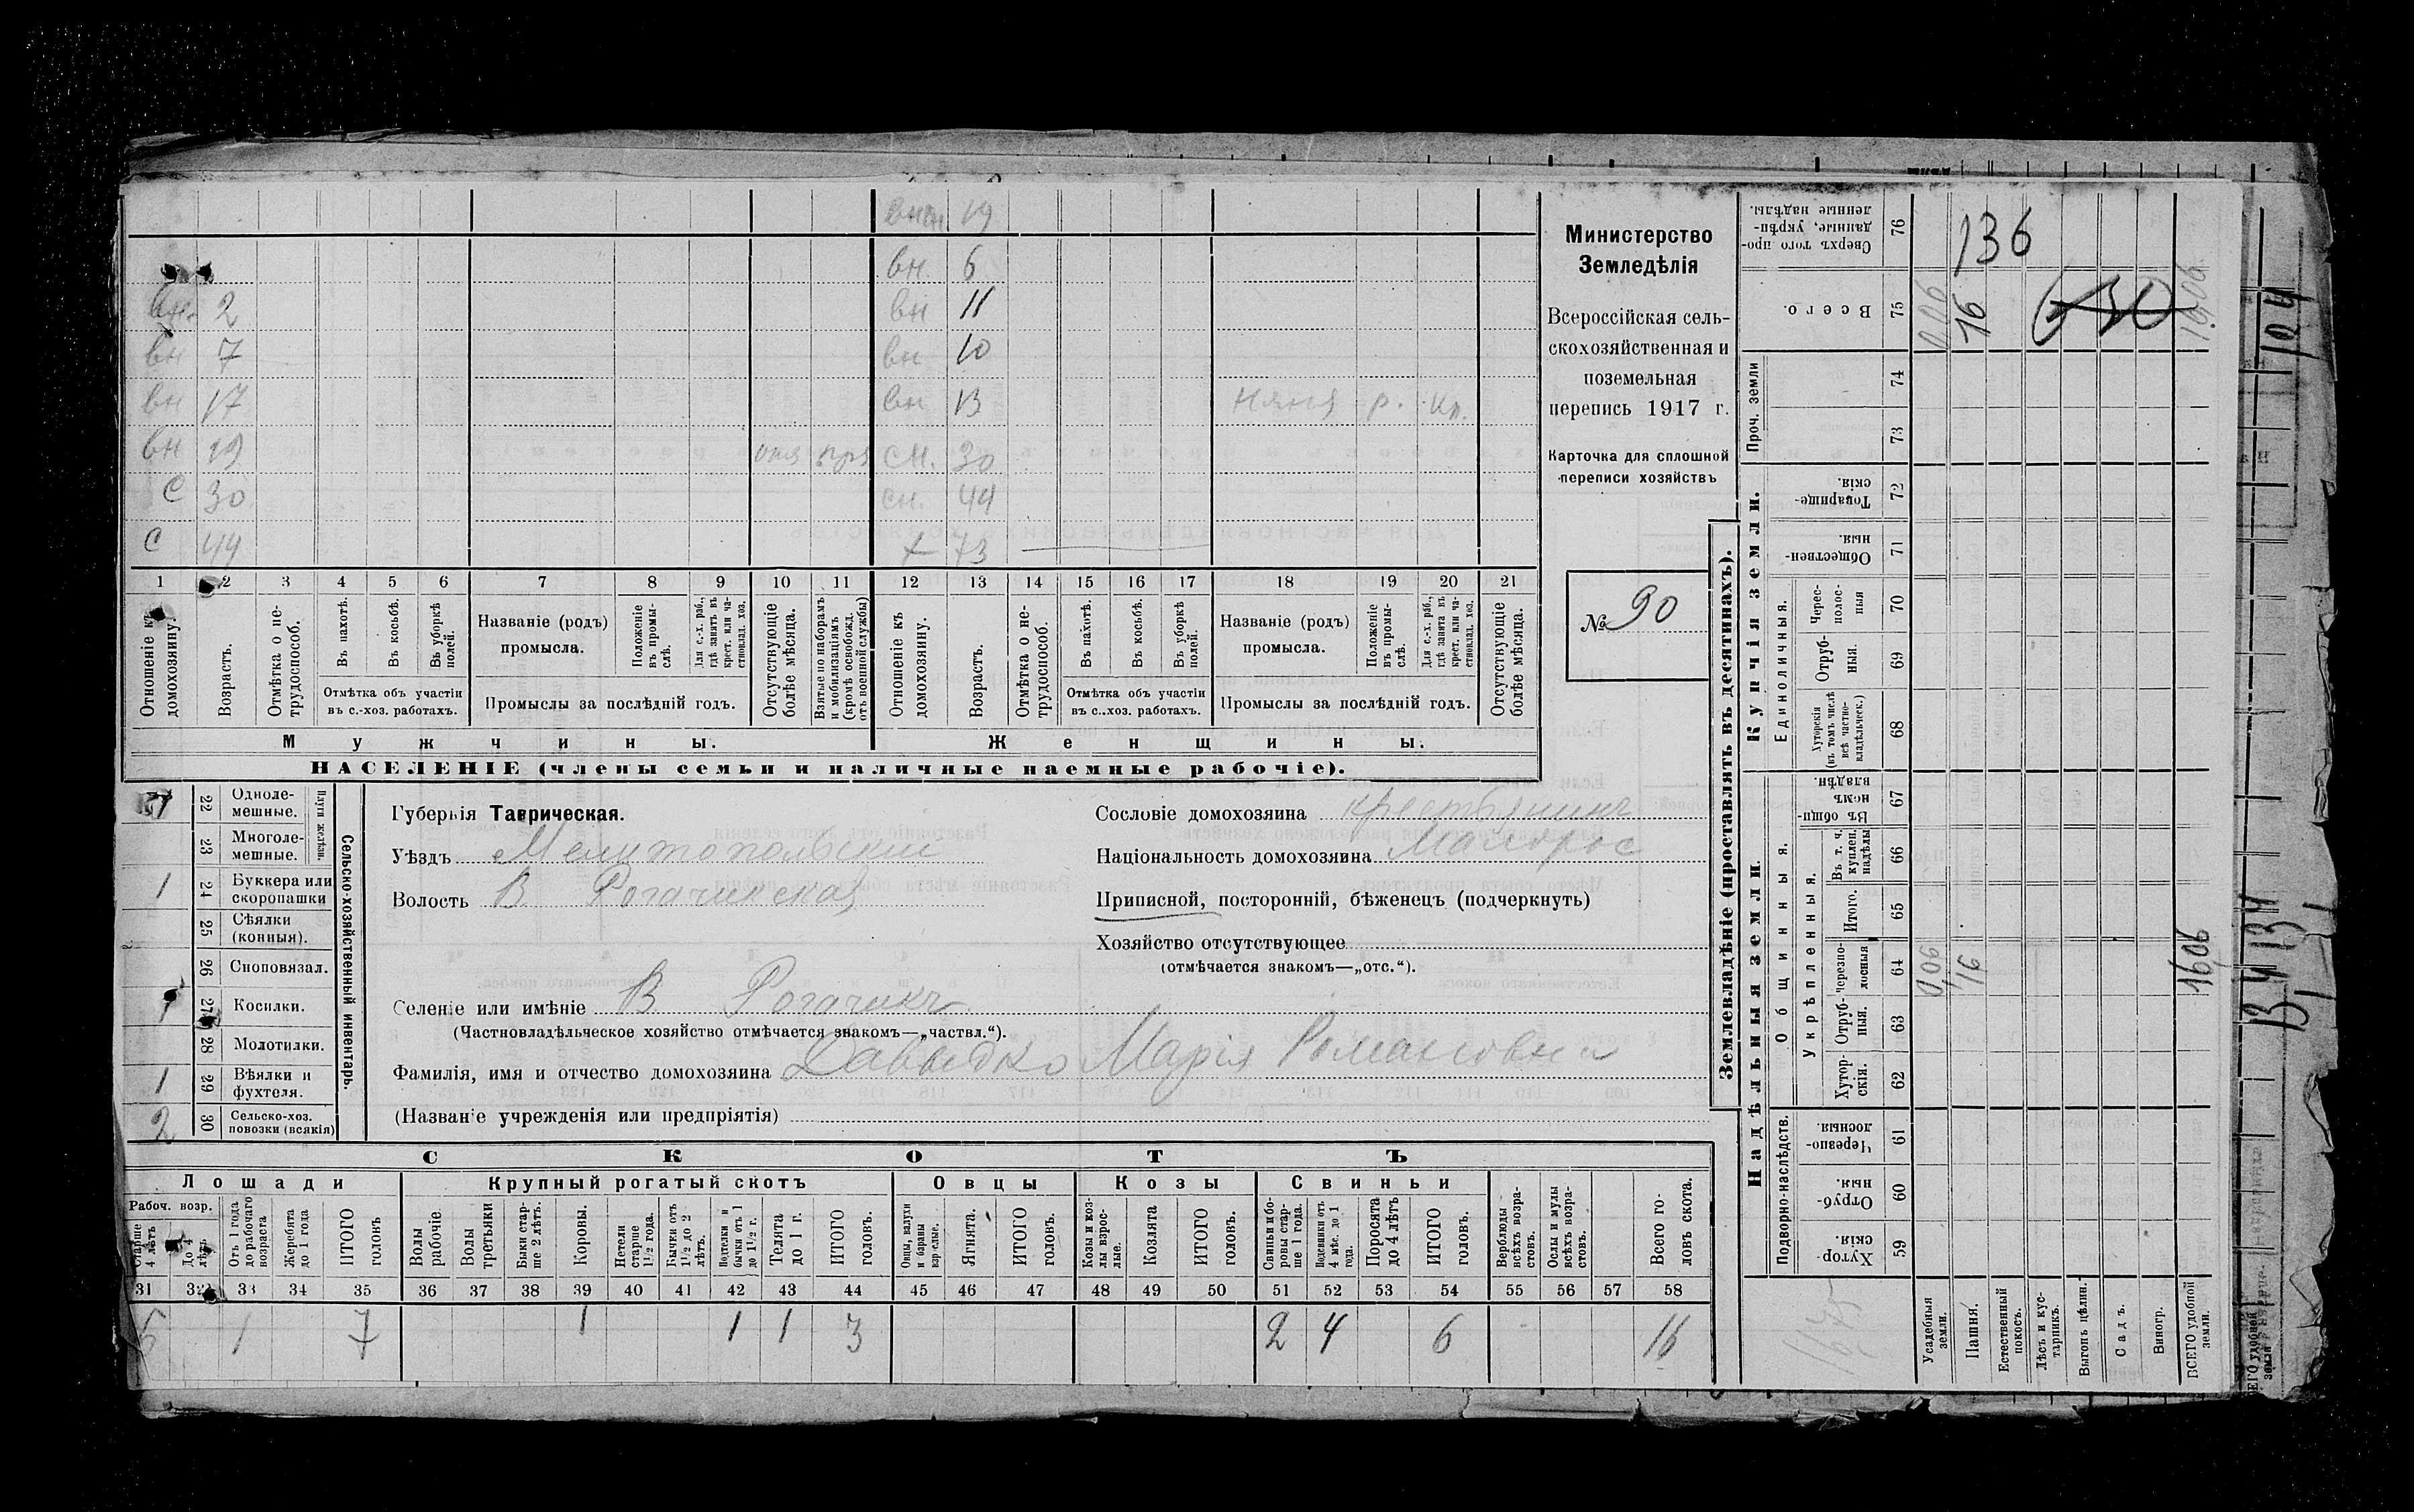 внчк 19
вн. 6
вн. 2 вн 11
вн 7 вн 10
вн 17 вн 13 няня р. кр.
вн 19 см. 30
С 30 сн. 44
С 44 х 73
1 2 3 4 5 6 7 8 9 10 11 12 13 14 15 16 17 18 19 20 21
Отношеніе къ домохозяину.
Возрастъ.
Отмѣтка о нетрудоспособ.
Въ пахотѣ.
Въ косьбѣ.
Въ уборкѣ полей.
Отмѣтка объ участіи
въ с.-хоз. работахъ.
Названіе (родъ)
промысла.
Положеніе въ промыслѣ.
Для с.-х. раб., гдѣ занятъ въ крест. или частновлад. хоз.
Промыслы за послѣдній годъ.
Отсутствующіе болѣе мѣсяца.
Взятые по наборамъ и мобилизаціямъ (кромѣ освобожд. отъ военной службы)
Отношеніе къ домохозяину.
Возрастъ.
Отмѣтка о нетрудоспособ.
Въ пахотѣ.
Въ косьбѣ.
Въ уборкѣ полей.
Отмѣтка объ участіи
въ с.-хоз. работахъ.
Названіе (родъ)
промысла.
Положеніе въ промыслѣ.
Для с.-х. раб., гдѣ занята въ крест. или частновлад. хоз.
Промыслы за послѣдній годъ.
Отсутствующіе болѣе мѣсяца.
Мужчины. Женщины.
НАСЕЛЕНІЕ (члены семьи и наличные наемные рабочіе).
Министерство
Земледѣлія
Всероссійская сель-
скохозяйственная и
поземельная
перепись 1917 г.
Карточка для сплошной
переписи хозяйствъ
№ 90
Сельско-хозяйственный инвентарь.
Плуги желѣзн.
1 22 Одноле-
мешные.
23 Многоле-
мешные.
1 24 Буккера или
скоропашки
25 Сѣялки
(конныя).
26 Сноповязал.
1 27 Косилки.
28 Молотилки.
1 29 Вѣялки и
фухтеля.
2 30 Сельско-хоз.
повозки (всякія)
Губернія Таврическая.
Уѣздъ Мелитопольскій
Волость В. Рогачикская
Селеніе или имѣніе В Рогачикъ
(Частновладѣльческое хозяйство отмѣчается знакомъ—„частвл.“).
Фамилія, имя и отчество домохозяина Давыдко Марія Романовна
(Названіе учрежденія или предпріятія)
Сословіе домохозяина крестьянинъ
Національность домохозяина малорос
Приписной, посторонній, бѣженецъ (подчеркнуть)
Хозяйство отсутствующее
(отмѣчается знакомъ—„отс.“).
СКОТЪ
Лошади Крупный рогатый скотъ Овцы Козы Свиньи
Рабоч. возр.
Старше 4 лѣтъ
До 4 лѣтъ
Отъ 1 года до рабочаго возраста
Жеребята до 1 года
ИТОГО головъ
Волы рабочіе
Волы третьяки
Быки старше 2 лѣтъ.
Коровы.
Нетели старше 1½ года.
Бычки отъ 1½ до 2 лѣтъ.
Подтелки и бычки отъ 1 до 1½ г.
Телята до 1 г.
ИТОГО головъ.
Овцы, валухи и бараны взрослые.
Ягнята.
ИТОГО головъ.
Козы и козлы взрослые.
Козлята
ИТОГО головъ.
Свиньи и боровы старше 1 года.
Подсвинки отъ 4 мѣс. до 1 года.
Поросята до 4 лѣтъ
ИТОГО головъ.
Верблюды всѣхъ возрастовъ.
Ослы и мулы всѣхъ возрастовъ.
Всего головъ скота.
31 32 33 34 35 36 37 38 39 40 41 42 43 44 45 46 47 48 49 50 51 52 53 54 55 56 57 58
6 1 7 1 1 1 3 2 4 6 16
Землевладѣніе (проставлять въ десятинахъ).
Купчія земли.
Надѣльныя земли.
Сверхъ того проданные, укрѣпленные надѣлы. 76 136
Всего. 75 0,06 16 16,06
Проч. земли 74
73
Товарищескія. 72
Общественныя. 71
Единоличныя.
Чересполосныя 70
Отрубныя. 69
Хуторскія (въ томъ числѣ всѣ частновладѣльческ.) 68
Общинныя.
Въ общинномъ владѣн. 67
Укрѣпленныя.
Въ т. ч. куплен. надѣлы 66
Итого. 65
Черезполосныя 64 0,06 16 16,06
Отрубныя. 63
Хуторскія. 62
Подворно-наслѣдств.
Черезполосныя. 61
Отрубныя. 60
Хуторскія. 59
Усадебныя земли.
Пашня.
Естественный покосъ.
Лѣсъ и кустарникъ.
Выгонъ цѣлин.
Садъ.
Виногр.
ВСЕГО удобной земли.
104
134
134